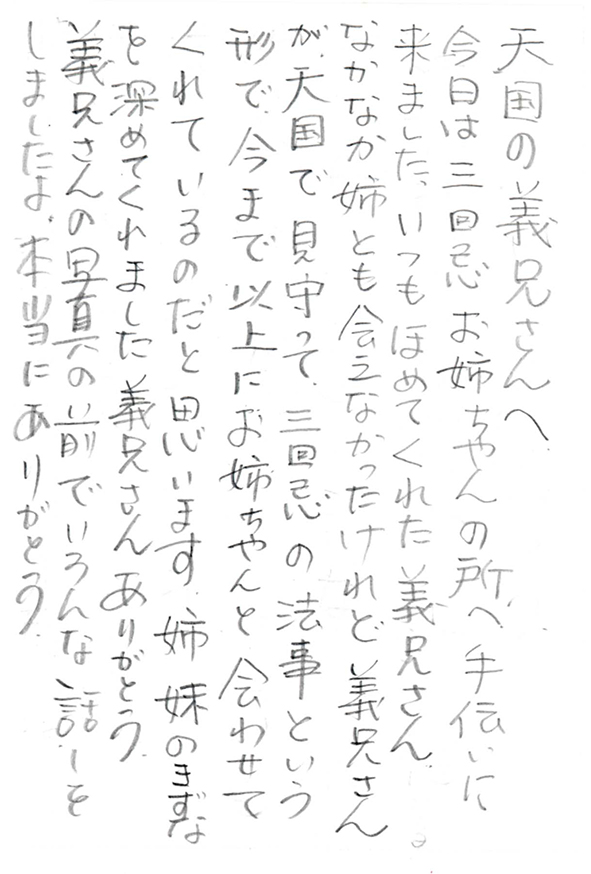 天国の義兄さんへ
今日は三回忌お姉ちゃんの所へ手伝いに
来ました、いつもほめてくれた義兄さん。
なかなか姉とも会えなかったけれど義兄さん
が、天国で見守って、三回忌の法事という
形で、今まで以上にお姉ちゃんと会わせて
くれているのだと思います。姉妹のきずな
を深めてくれました義兄さんありがとう。
義兄さんの写真の前でいろんな話しを
しましたよ、本当にありがとう。